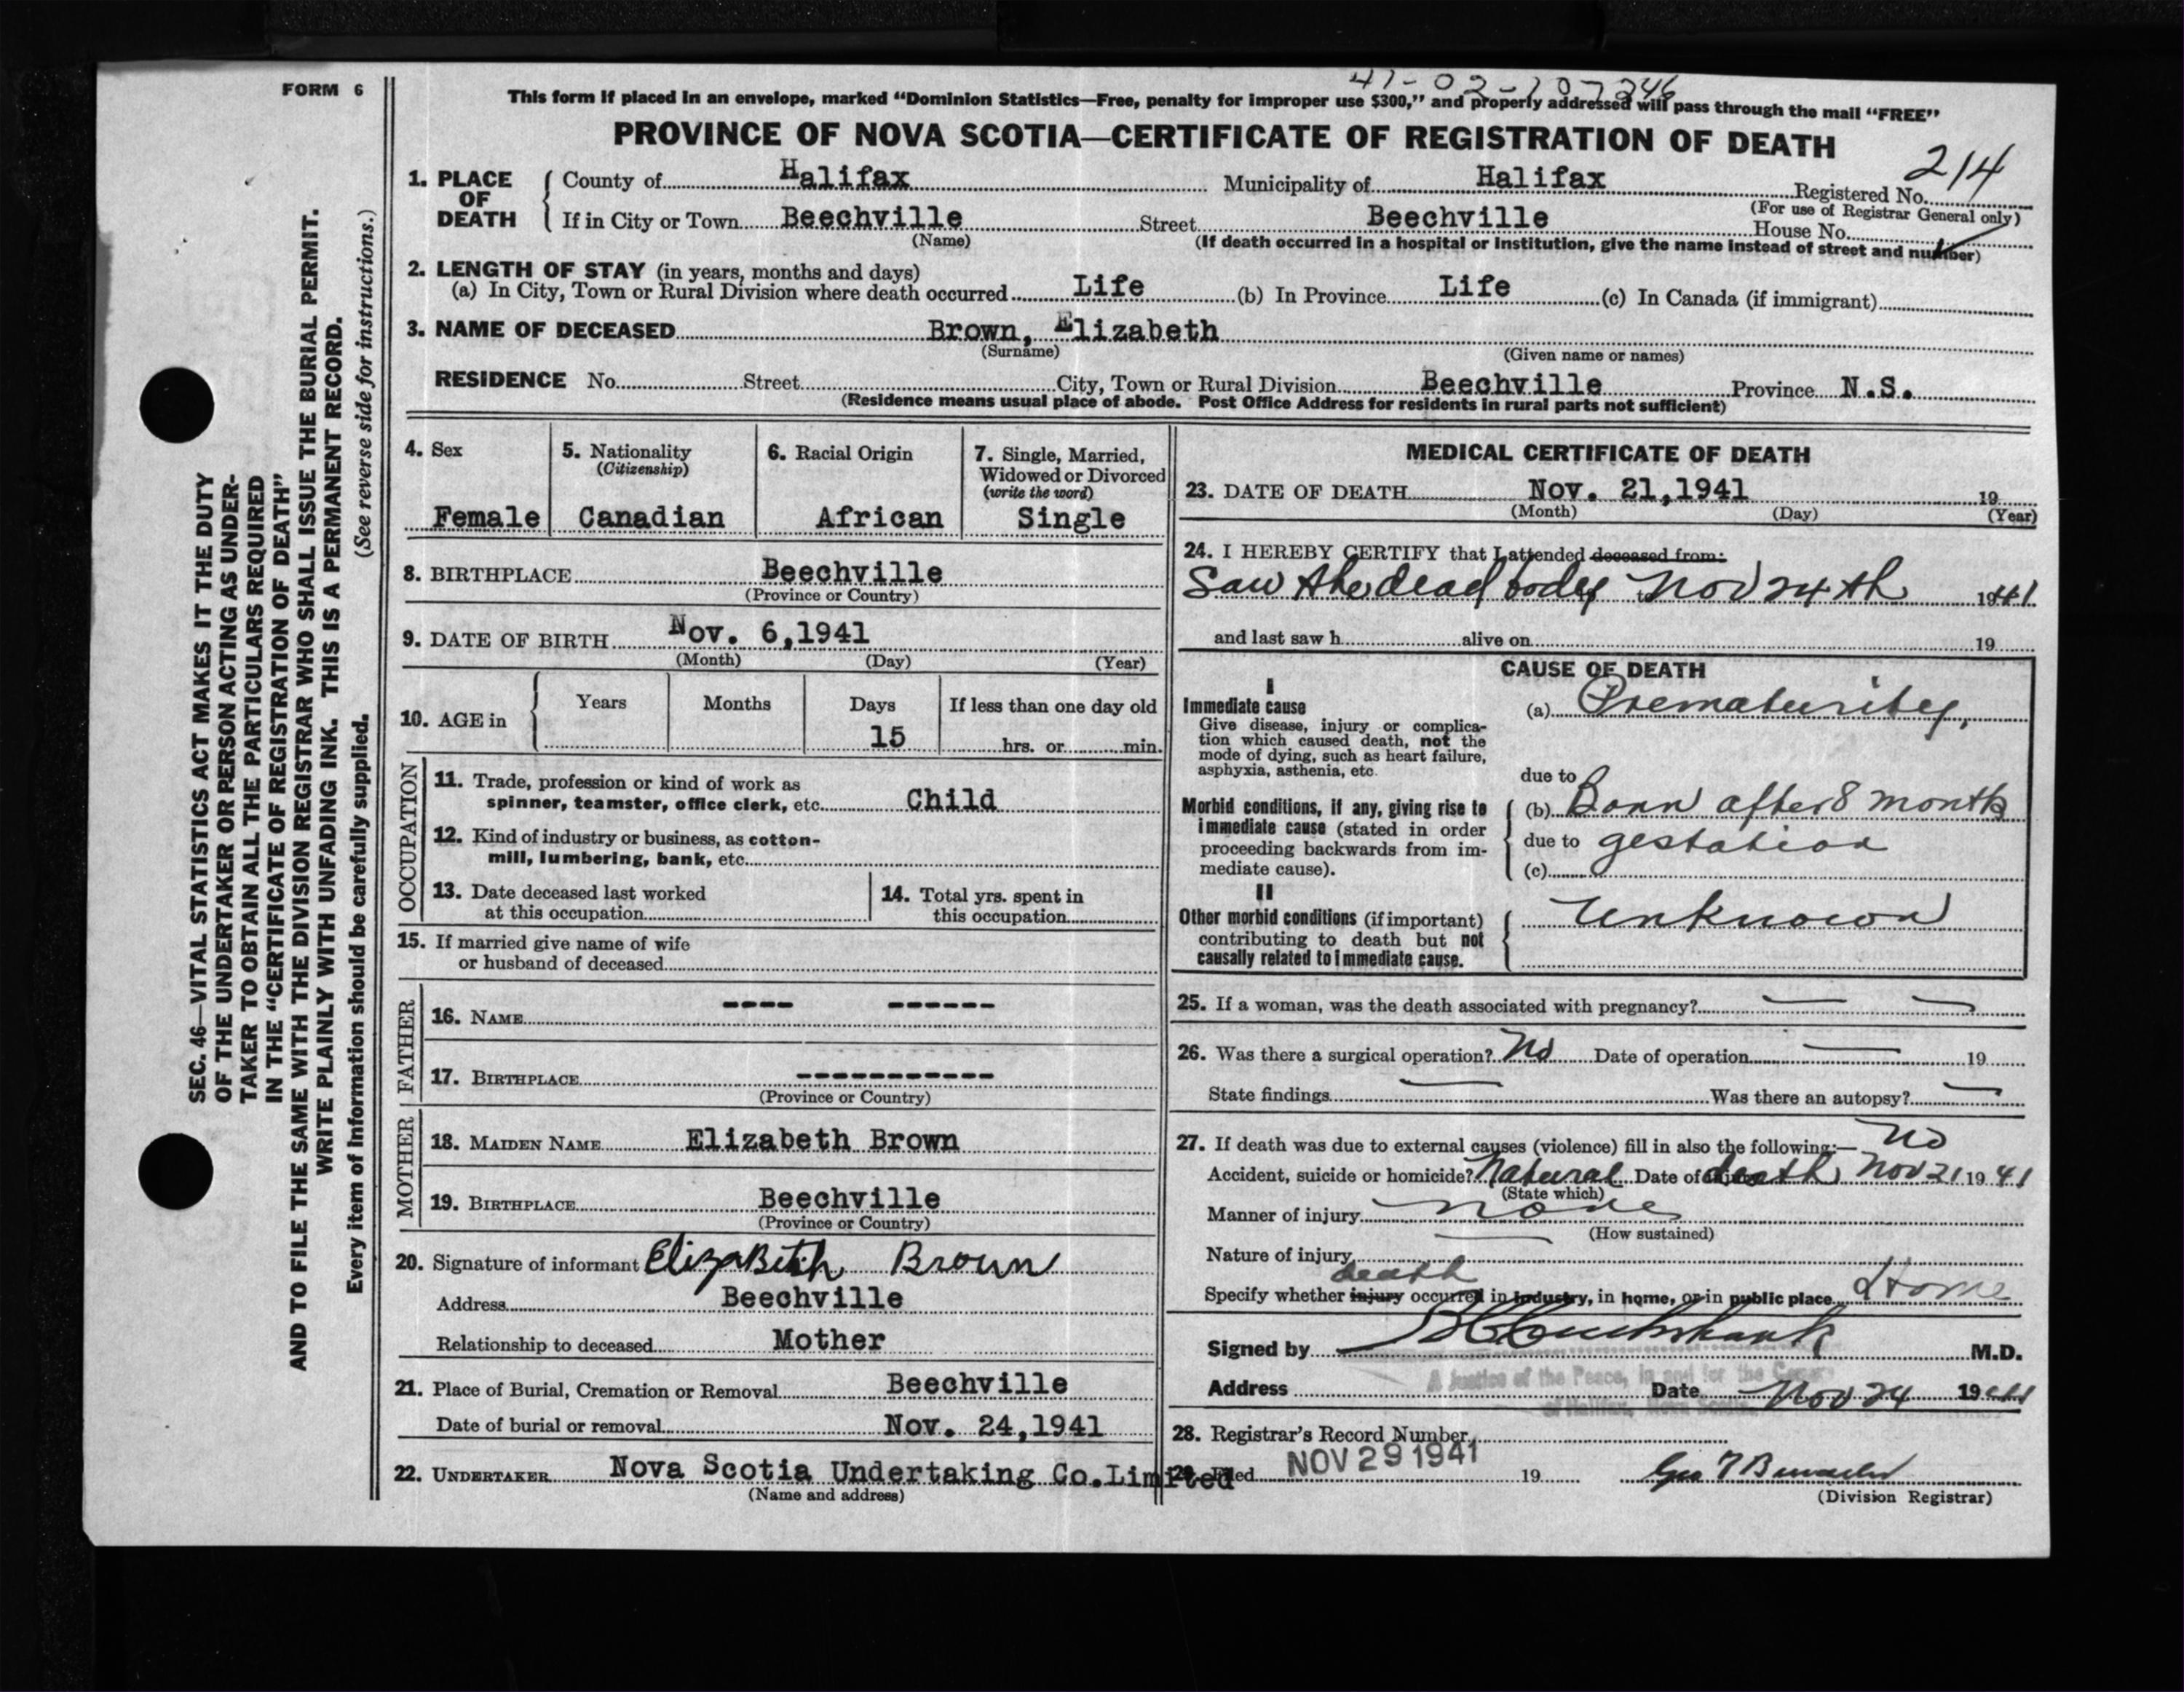 FORM 6
41-02-107246
This form if placed in an envelope, marked "Dominion Statistics—Free, penalty for improper use $300," and properly addressed will pass through the mail "FREE"
PROVINCE OF NOVA SCOTIA—CERTIFICATE OF REGISTRATION OF DEATH
1. PLACE OF DEATH { County of Halifax Municipality of Halifax Registered No. 214
(For use of Registrar General only)
If in City or Town Beechville Street Beechville House No.
(Name) (If death occurred in a hospital or institution, give the name instead of street and number)
2. LENGTH OF STAY (in years, months and days)
(a) In City, Town or Rural Division where death occurred Life (b) In Province Life (c) In Canada (if immigrant)
3. NAME OF DECEASED Brown, Elizabeth
(Surname) (Given name or names)
RESIDENCE No. Street City, Town or Rural Division Beechville Province N.S.
(Residence means usual place of abode. Post Office Address for residents in rural parts not sufficient)
4. Sex
Female
5. Nationality
(Citizenship)
Canadian
6. Racial Origin
African
7. Single, Married,
Widowed or Divorced
(write the word)
Single
8. BIRTHPLACE Beechville
(Province or Country)
9. DATE OF BIRTH Nov. 6,1941
(Month) (Day) (Year)
10. AGE in { Years Months Days If less than one day old
15 hrs. or min.
OCCUPATION
11. Trade, profession or kind of work as
spinner, teamster, office clerk, etc. Child
12. Kind of industry or business, as cotton-
mill, lumbering, bank, etc.
13. Date deceased last worked
at this occupation
14. Total yrs. spent in
this occupation
15. If married give name of wife
or husband of deceased
FATHER
16. NAME ---- ------
17. BIRTHPLACE -----------
(Province or Country)
MOTHER
18. MAIDEN NAME Elizabeth Brown
19. BIRTHPLACE Beechville
(Province or Country)
20. Signature of informant Elizabeth Brown
Address Beechville
Relationship to deceased Mother
21. Place of Burial, Cremation or Removal Beechville
Date of burial or removal Nov. 24,1941
22. UNDERTAKER Nova Scotia Undertaking Co.Limited
(Name and address)
MEDICAL CERTIFICATE OF DEATH
23. DATE OF DEATH Nov. 21,1941 19
(Month) (Day) (Year)
24. I HEREBY CERTIFY that I attended deceased from:
Saw the dead body to Nov 24th 1941
and last saw h alive on 19
CAUSE OF DEATH
I
Immediate cause
Give disease, injury or complica-
tion which caused death, not the
mode of dying, such as heart failure,
asphyxia, asthenia, etc.
(a) Prematurity,
due to
Morbid conditions, if any, giving rise to
immediate cause (stated in order
proceeding backwards from im-
mediate cause).
(b) Born after 8 months
due to gestation
(c)
II
Other morbid conditions (if important)
contributing to death but not
causally related to immediate cause.
Unknown
25. If a woman, was the death associated with pregnancy? — —
26. Was there a surgical operation? No Date of operation — 19
State findings — Was there an autopsy? —
27. If death was due to external causes (violence) fill in also the following:— No
Accident, suicide or homicide? Natural Date of death Nov 21 1941
(State which)
Manner of injury none
(How sustained)
Nature of injury —
death
Specify whether injury occurred in industry, in home, or in public place Home
Signed by M.D.
A Justice of the Peace, in and for the County
of Halifax, Nova Scotia
Address Date Nov 24 1941
28. Registrar's Record Number
29. Filed NOV 29 1941 19
(Division Registrar)
SEC. 46—VITAL STATISTICS ACT MAKES IT THE DUTY
OF THE UNDERTAKER OR PERSON ACTING AS UNDER-
TAKER TO OBTAIN ALL THE PARTICULARS REQUIRED
IN THE "CERTIFICATE OF REGISTRATION OF DEATH"
AND TO FILE THE SAME WITH THE DIVISION REGISTRAR WHO SHALL ISSUE THE BURIAL PERMIT.
WRITE PLAINLY WITH UNFADING INK. THIS IS A PERMANENT RECORD.
Every item of information should be carefully supplied. (See reverse side for instructions.)